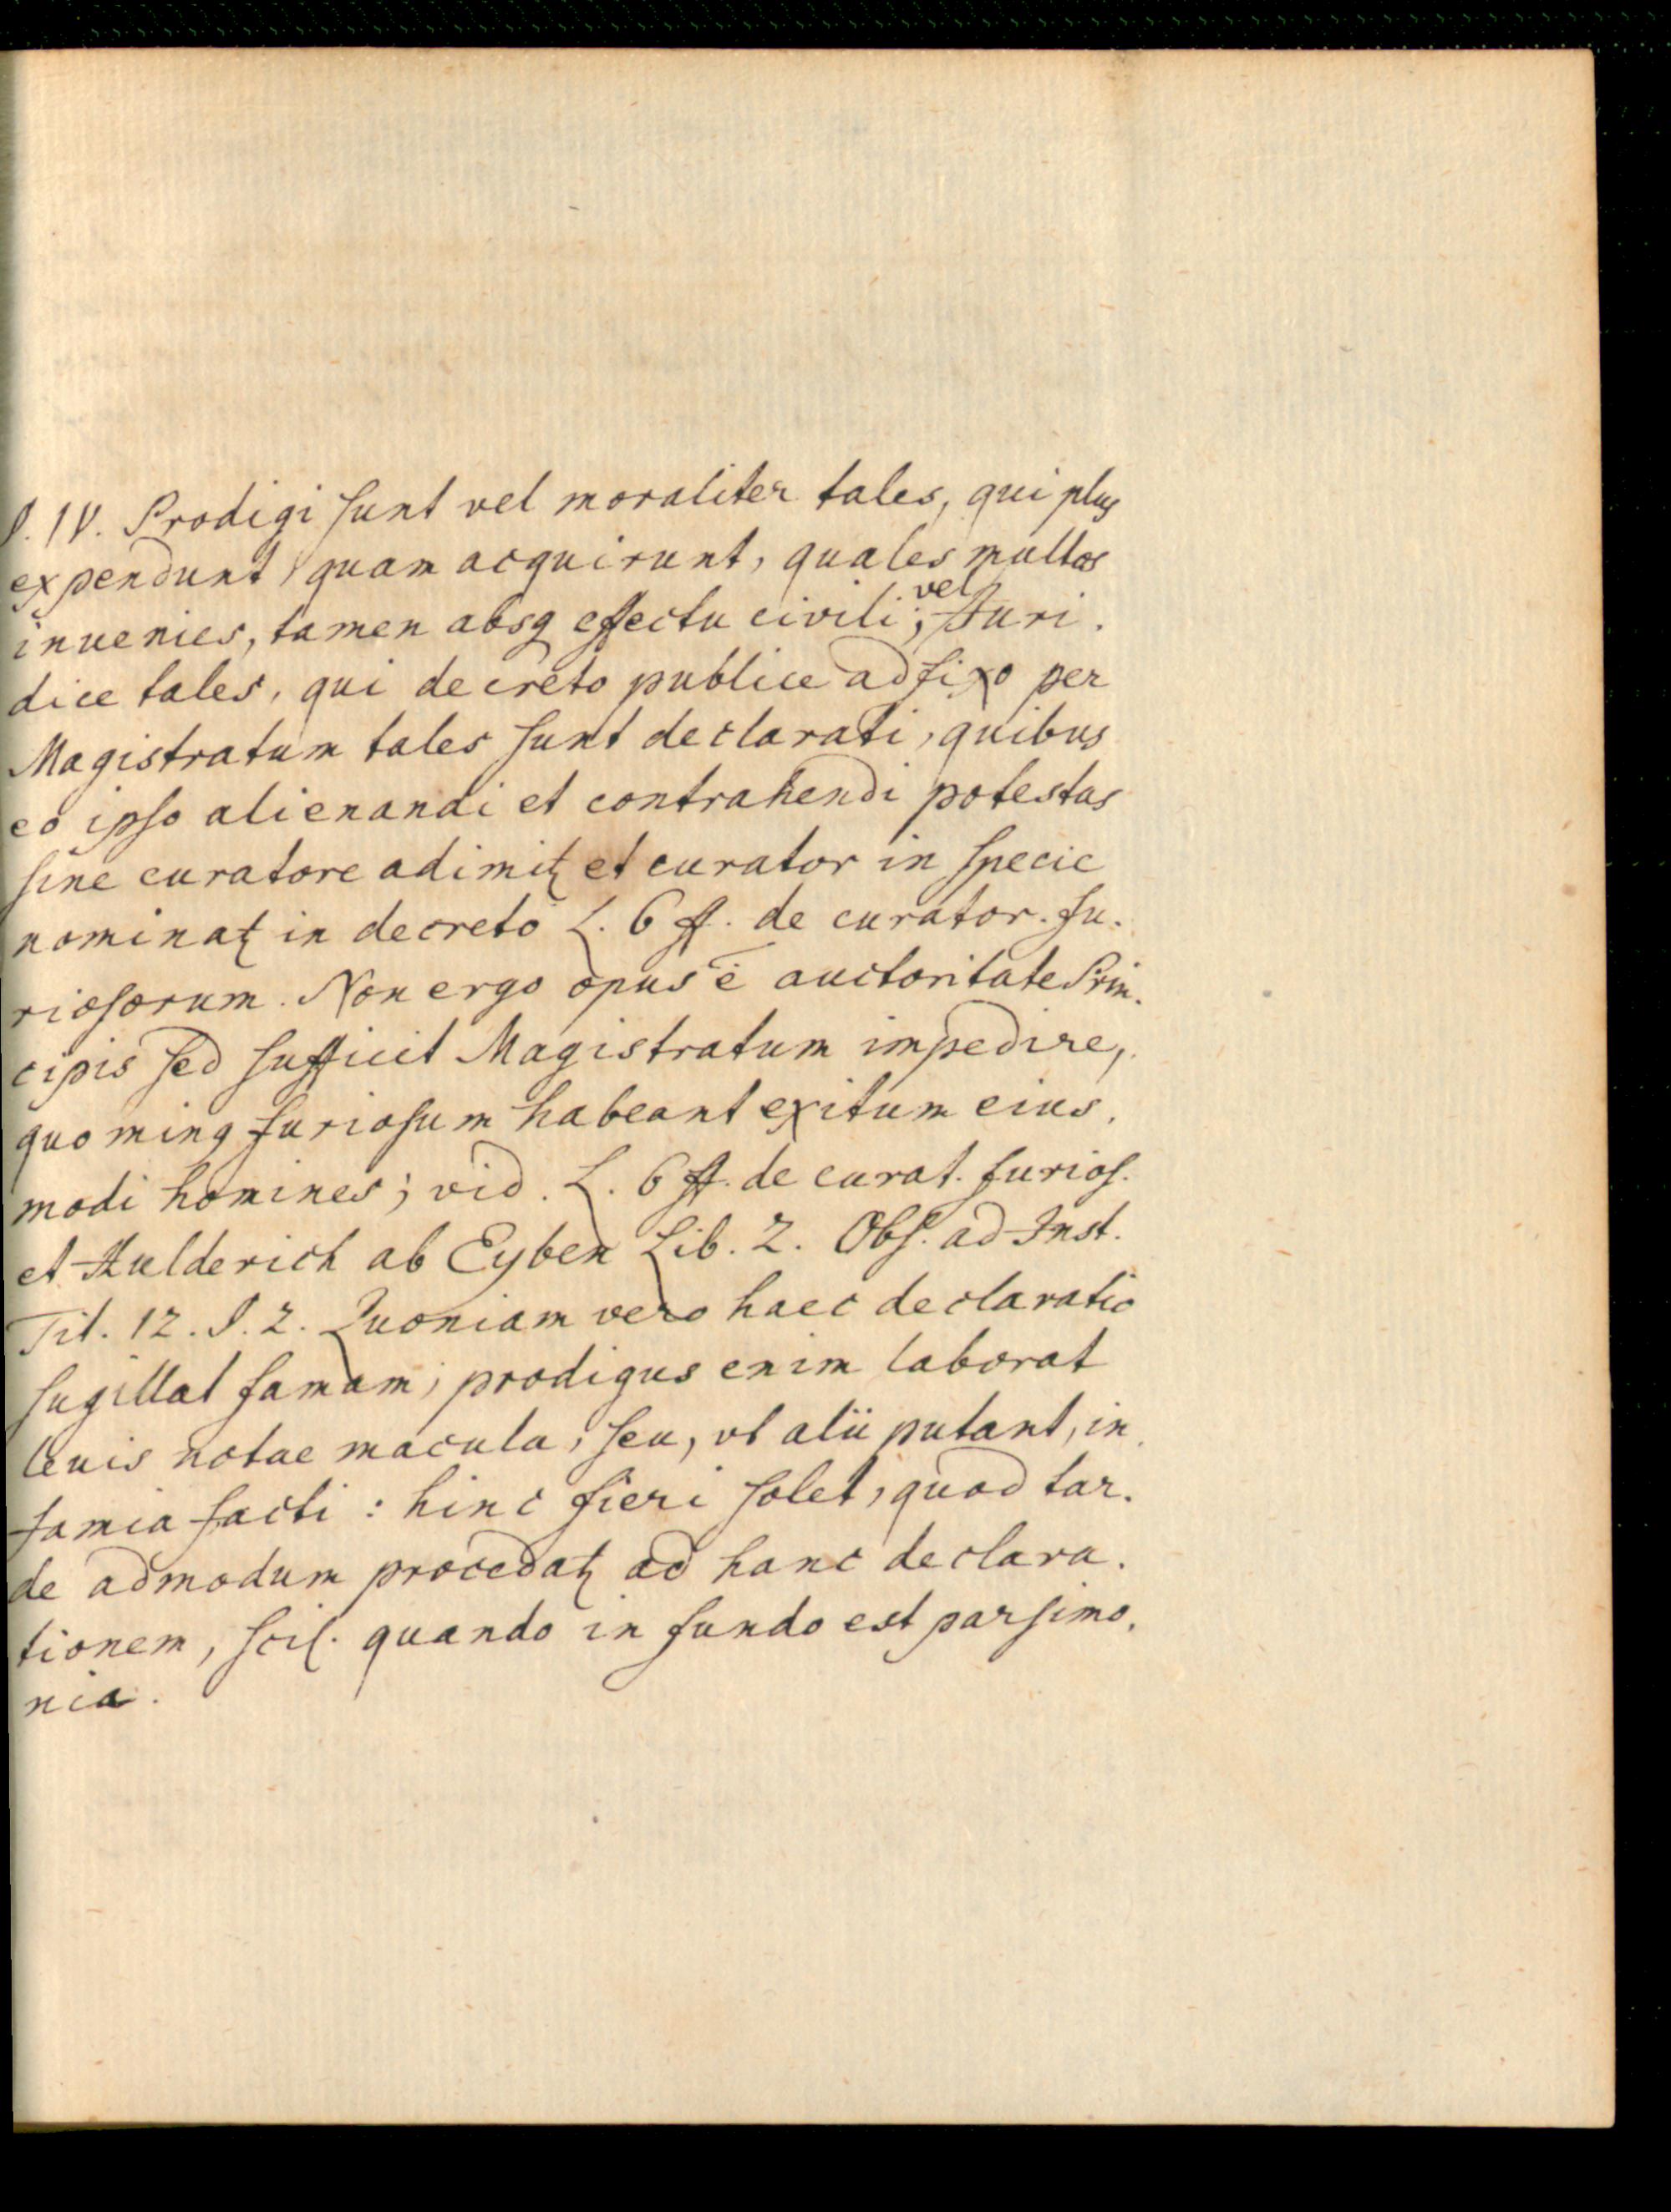 §. IV. Prodigi sunt vel moraliter tales, qui plus
expendunt, quam acquirunt, quales multos
inuenies, tamen absq effectu civili; vel Juri.
dice tales, qui decreto publice adfixo per
Magistratum tales sunt declarati, quibus
eo ipso alienandi et contrahendi potestas
sine curatore adimitꝛ et curator in specie
nominatꝛ in decreto L. 6 ff. de curator. fu.
riosorum. Non ergo opus ē auctoritate Prin.
cipis sed sufficit Magistratum impedire,
quo minq furiosum habeant exitum eius.
modi homines; vid. L. 6 ff. de curat. furios.
et Hulderich ab Eyben Lib. 2. Obs. ad Inst.
Tit. 12. §. 2. Quoniam vero haec declaratio
sugillat famam; prodigus enim laborat
leuis notae macula, seu, vt alii putant, in.
famia facti : hinc fieri solet, quod tar.
de admodum procedatꝛ ad hanc declara.
tionem, scil. quando in fundo est parsimo.
nia.